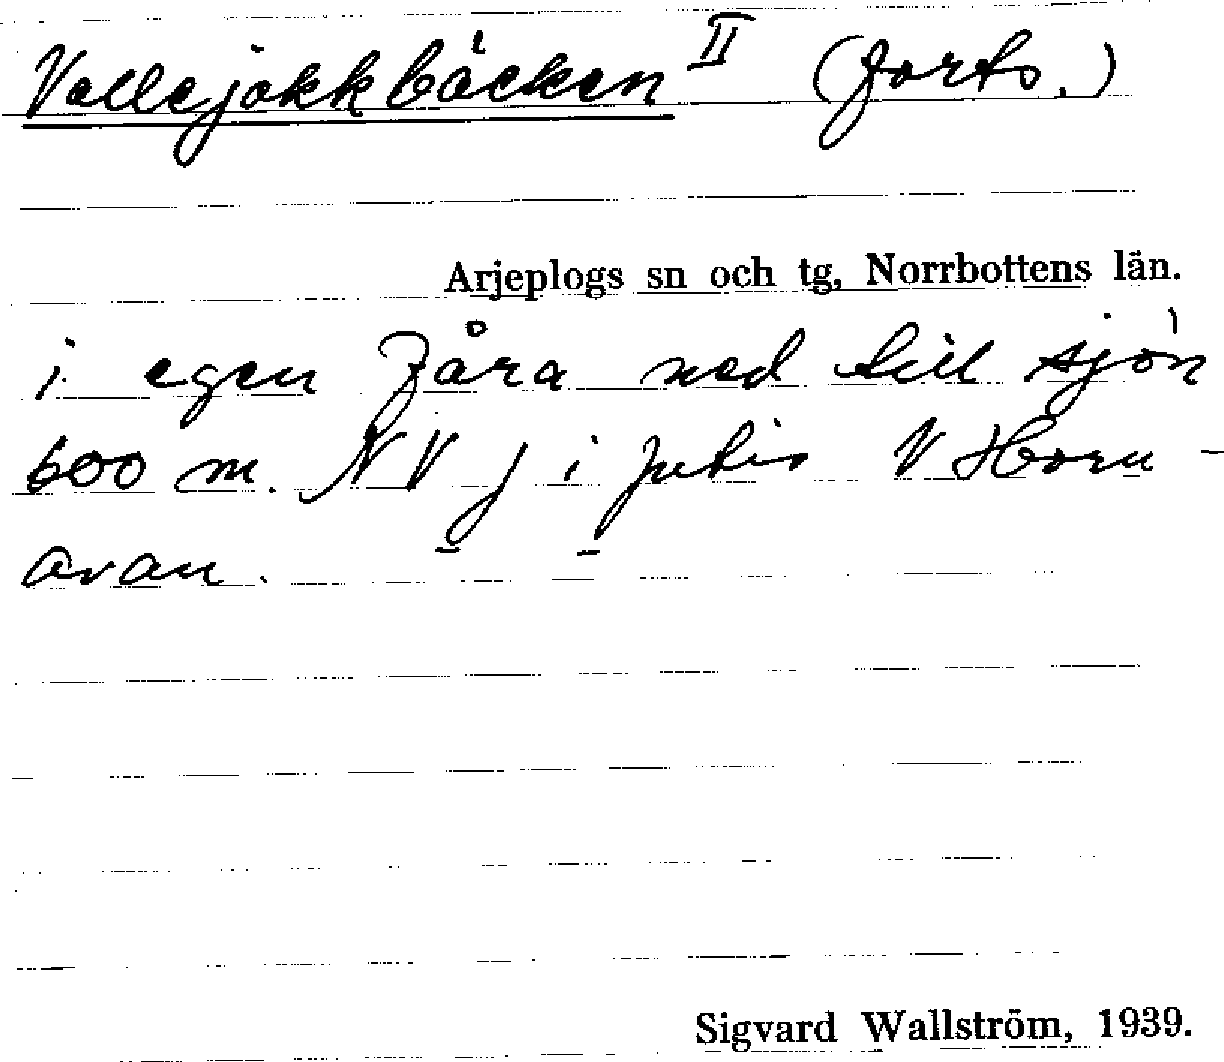 Vallejokkbäcken II (forts.)
Arjeplogs sn och tg, Norrbottens län.
i egen fåra ned till sjön
600 m. NV j i jutis V Horn-
avan.
Sigvard Wallström, 1939.